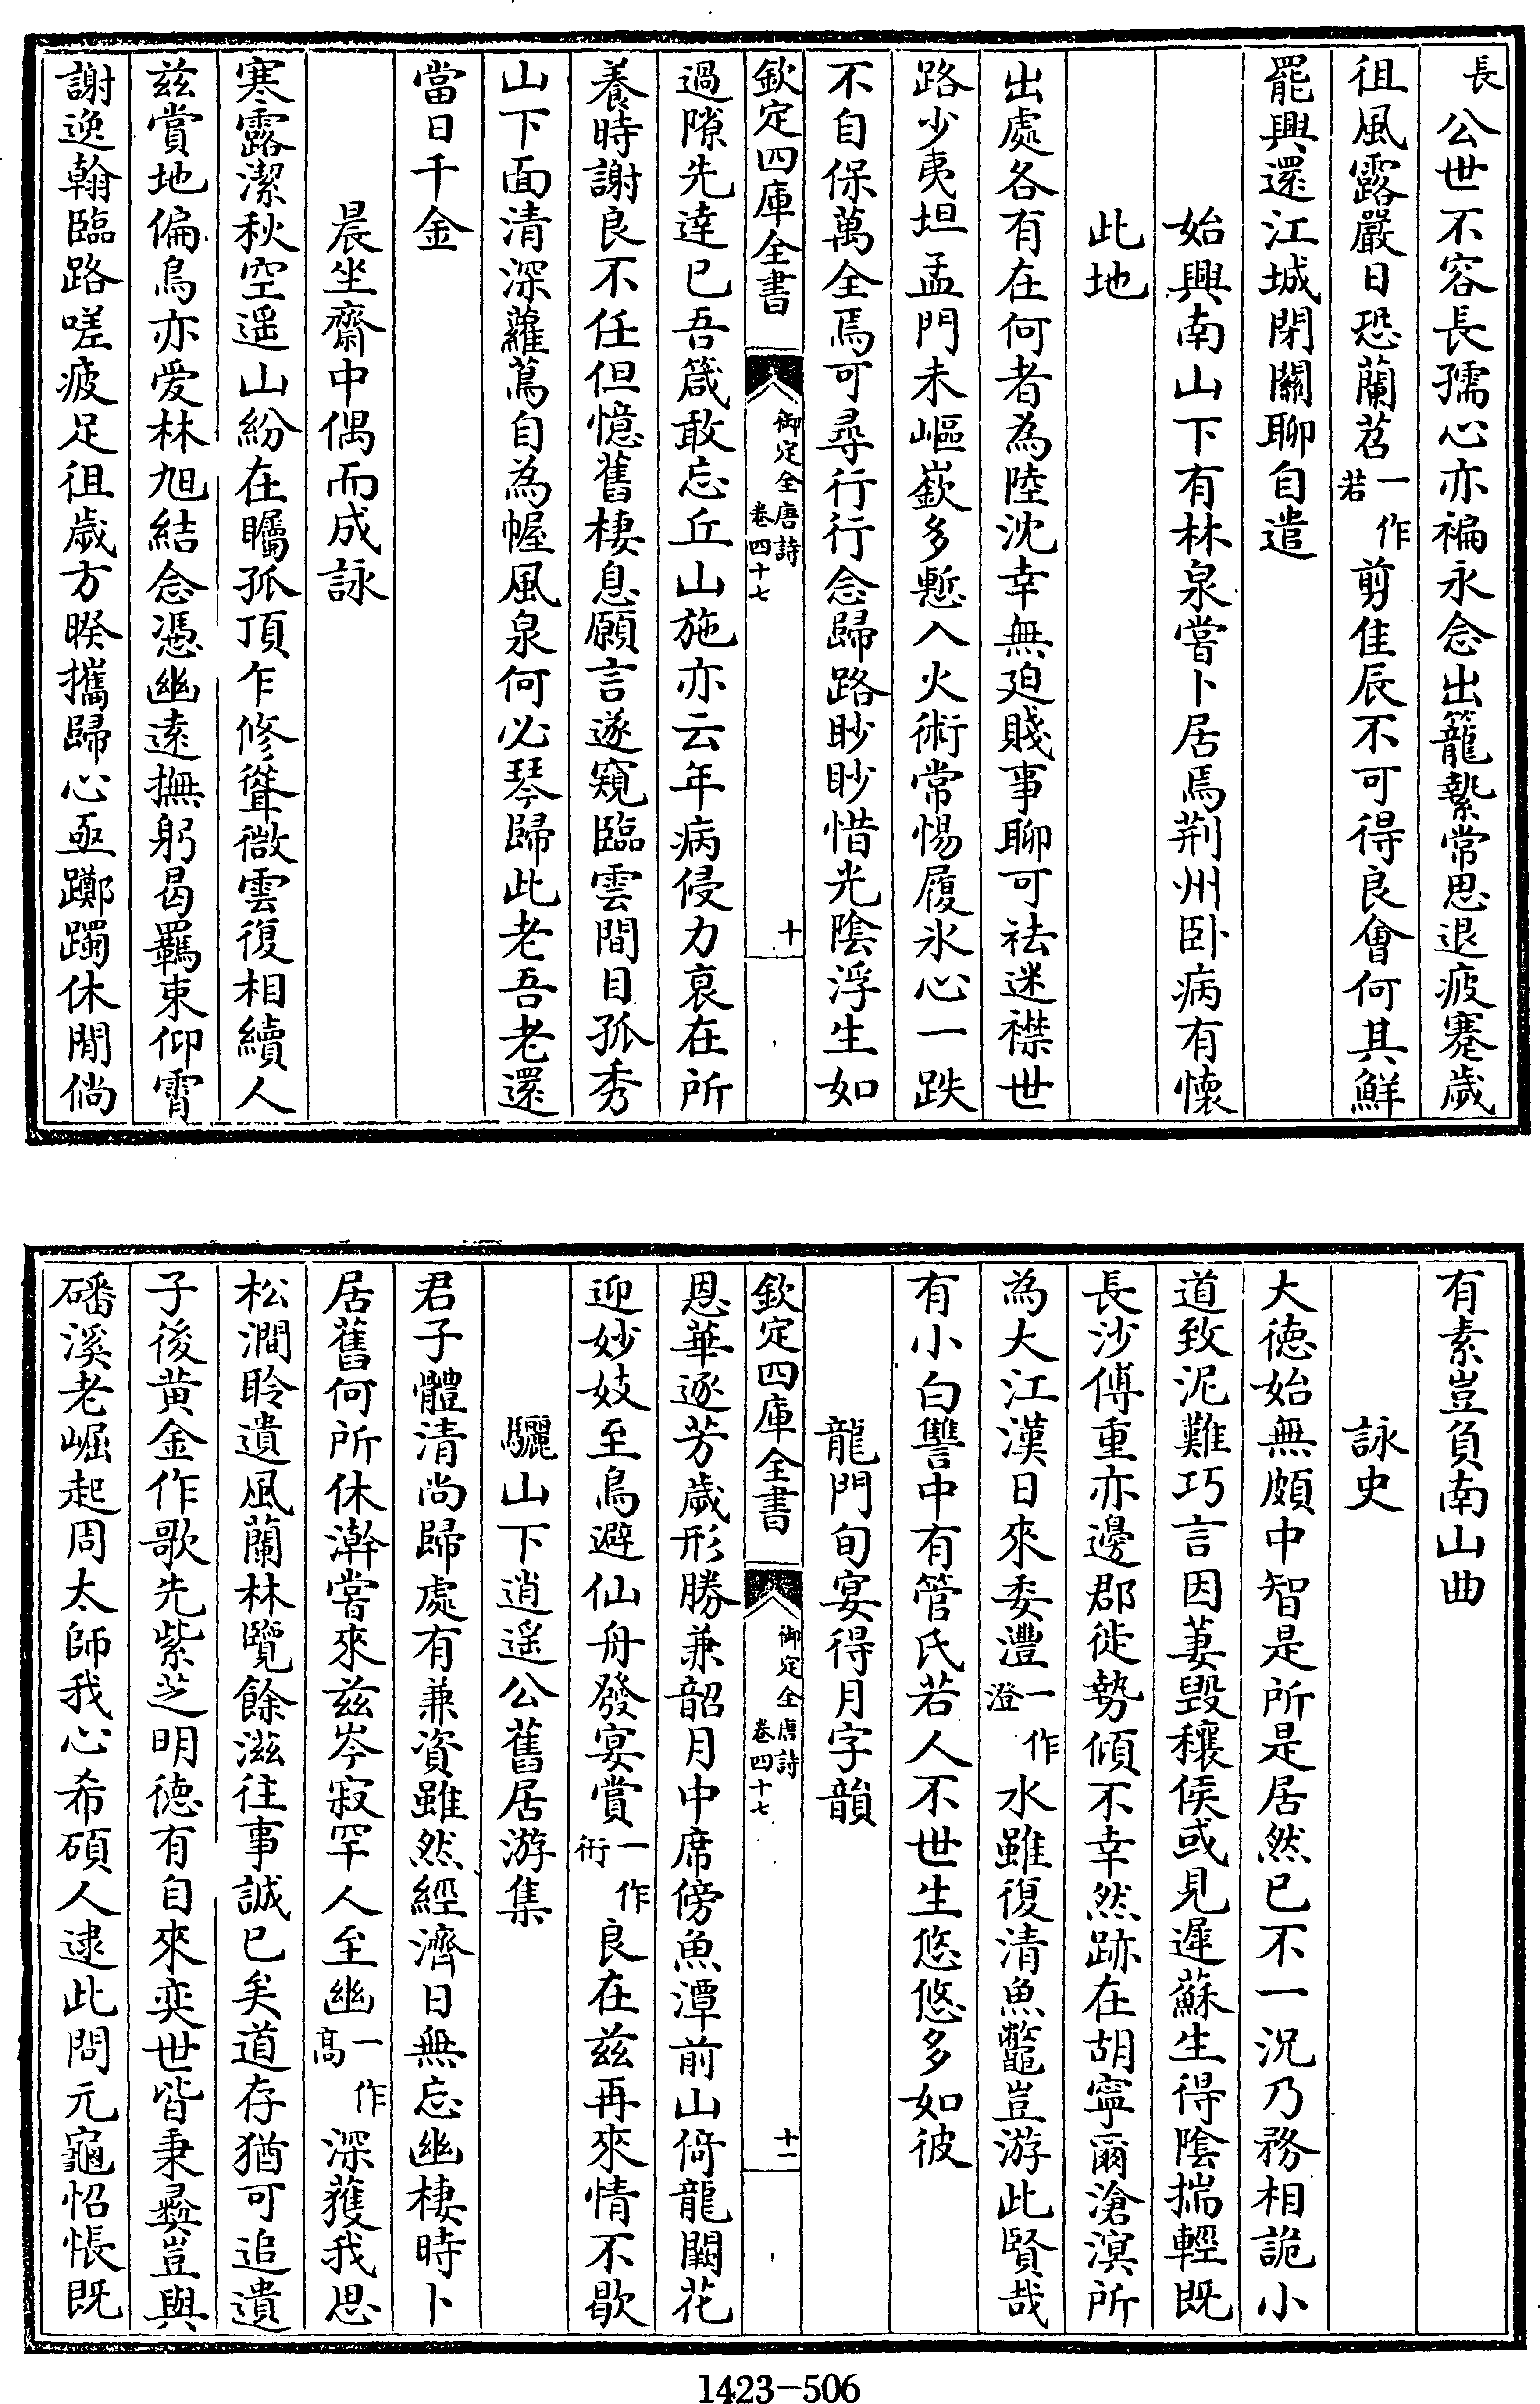 長公世不容長孺心亦褊永念出籠縶常思退疲蹇歲
徂風露嚴日恐蘭苕一作若剪佳辰不可得良會何其鮮
罷興還江城閉關聊自遣
始興南山下有林泉嘗卜居焉荆州卧病有懷
此地
出處各有在何者為陸沈幸無廹賤事聊可祛迷襟世
路少夷坦孟門未嶇嶔多慙入火術常惕履氷心一跌
不自保萬全焉可尋行行念歸路眇眇惜光陰浮生如
欽定四庫全書 御定全唐詩 卷四十七 十
過隙先達已吾箴敢忘丘山施亦云年病侵力衰在所
養時謝良不任但憶舊棲息願言遂窺臨雲間目孤秀
山下面清深蘿蔦自為幄風泉何必琴歸此老吾老還
當日千金
晨坐齋中偶而成詠
寒露潔秋空遥山紛在矚孤頂乍修聳微雲復相續人
兹賞地偏鳥亦愛林旭結念憑幽遠撫躬曷羈束仰霄
謝逸翰臨路嗟疲足徂歲方暌攜歸心亟躑躅休閒倘
有素豈負南山曲
詠史
大德始無頗中智是所是居然已不一況乃務相詭小
道致泥難巧言因萋毀穰侯或見遲蘇生得陰揣輕既
長沙傅重亦邊郡徙勢傾不幸然跡在胡寧爾滄溟所
為大江漢日來委灃一作澄水雖復清魚鼈豈游此賢哉
有小白讐中有管氏若人不世生悠悠多如彼
龍門旬宴得月字韻
欽定四庫全書 御定全唐詩 卷四十七 十一
恩華逐芳歲形勝兼韶月中席傍魚潭前山倚龍闕花
迎妙妓至鳥避仙舟發宴賞一作衎良在兹再來情不歇
驪山下逍遥公舊居游集
君子體清尚歸處有兼資雖然經濟日無忘幽棲時卜
居舊何所休澣嘗來兹岑寂罕人至幽一作高深獲我思
松澗聆遺風蘭林覽餘滋往事誠已矣道存猶可追遺
子後黄金作歌先紫芝明德有自來奕世皆秉彝豈與
磻溪老崛起周太師我心希碩人逮此問元龜怊悵既
1423-506